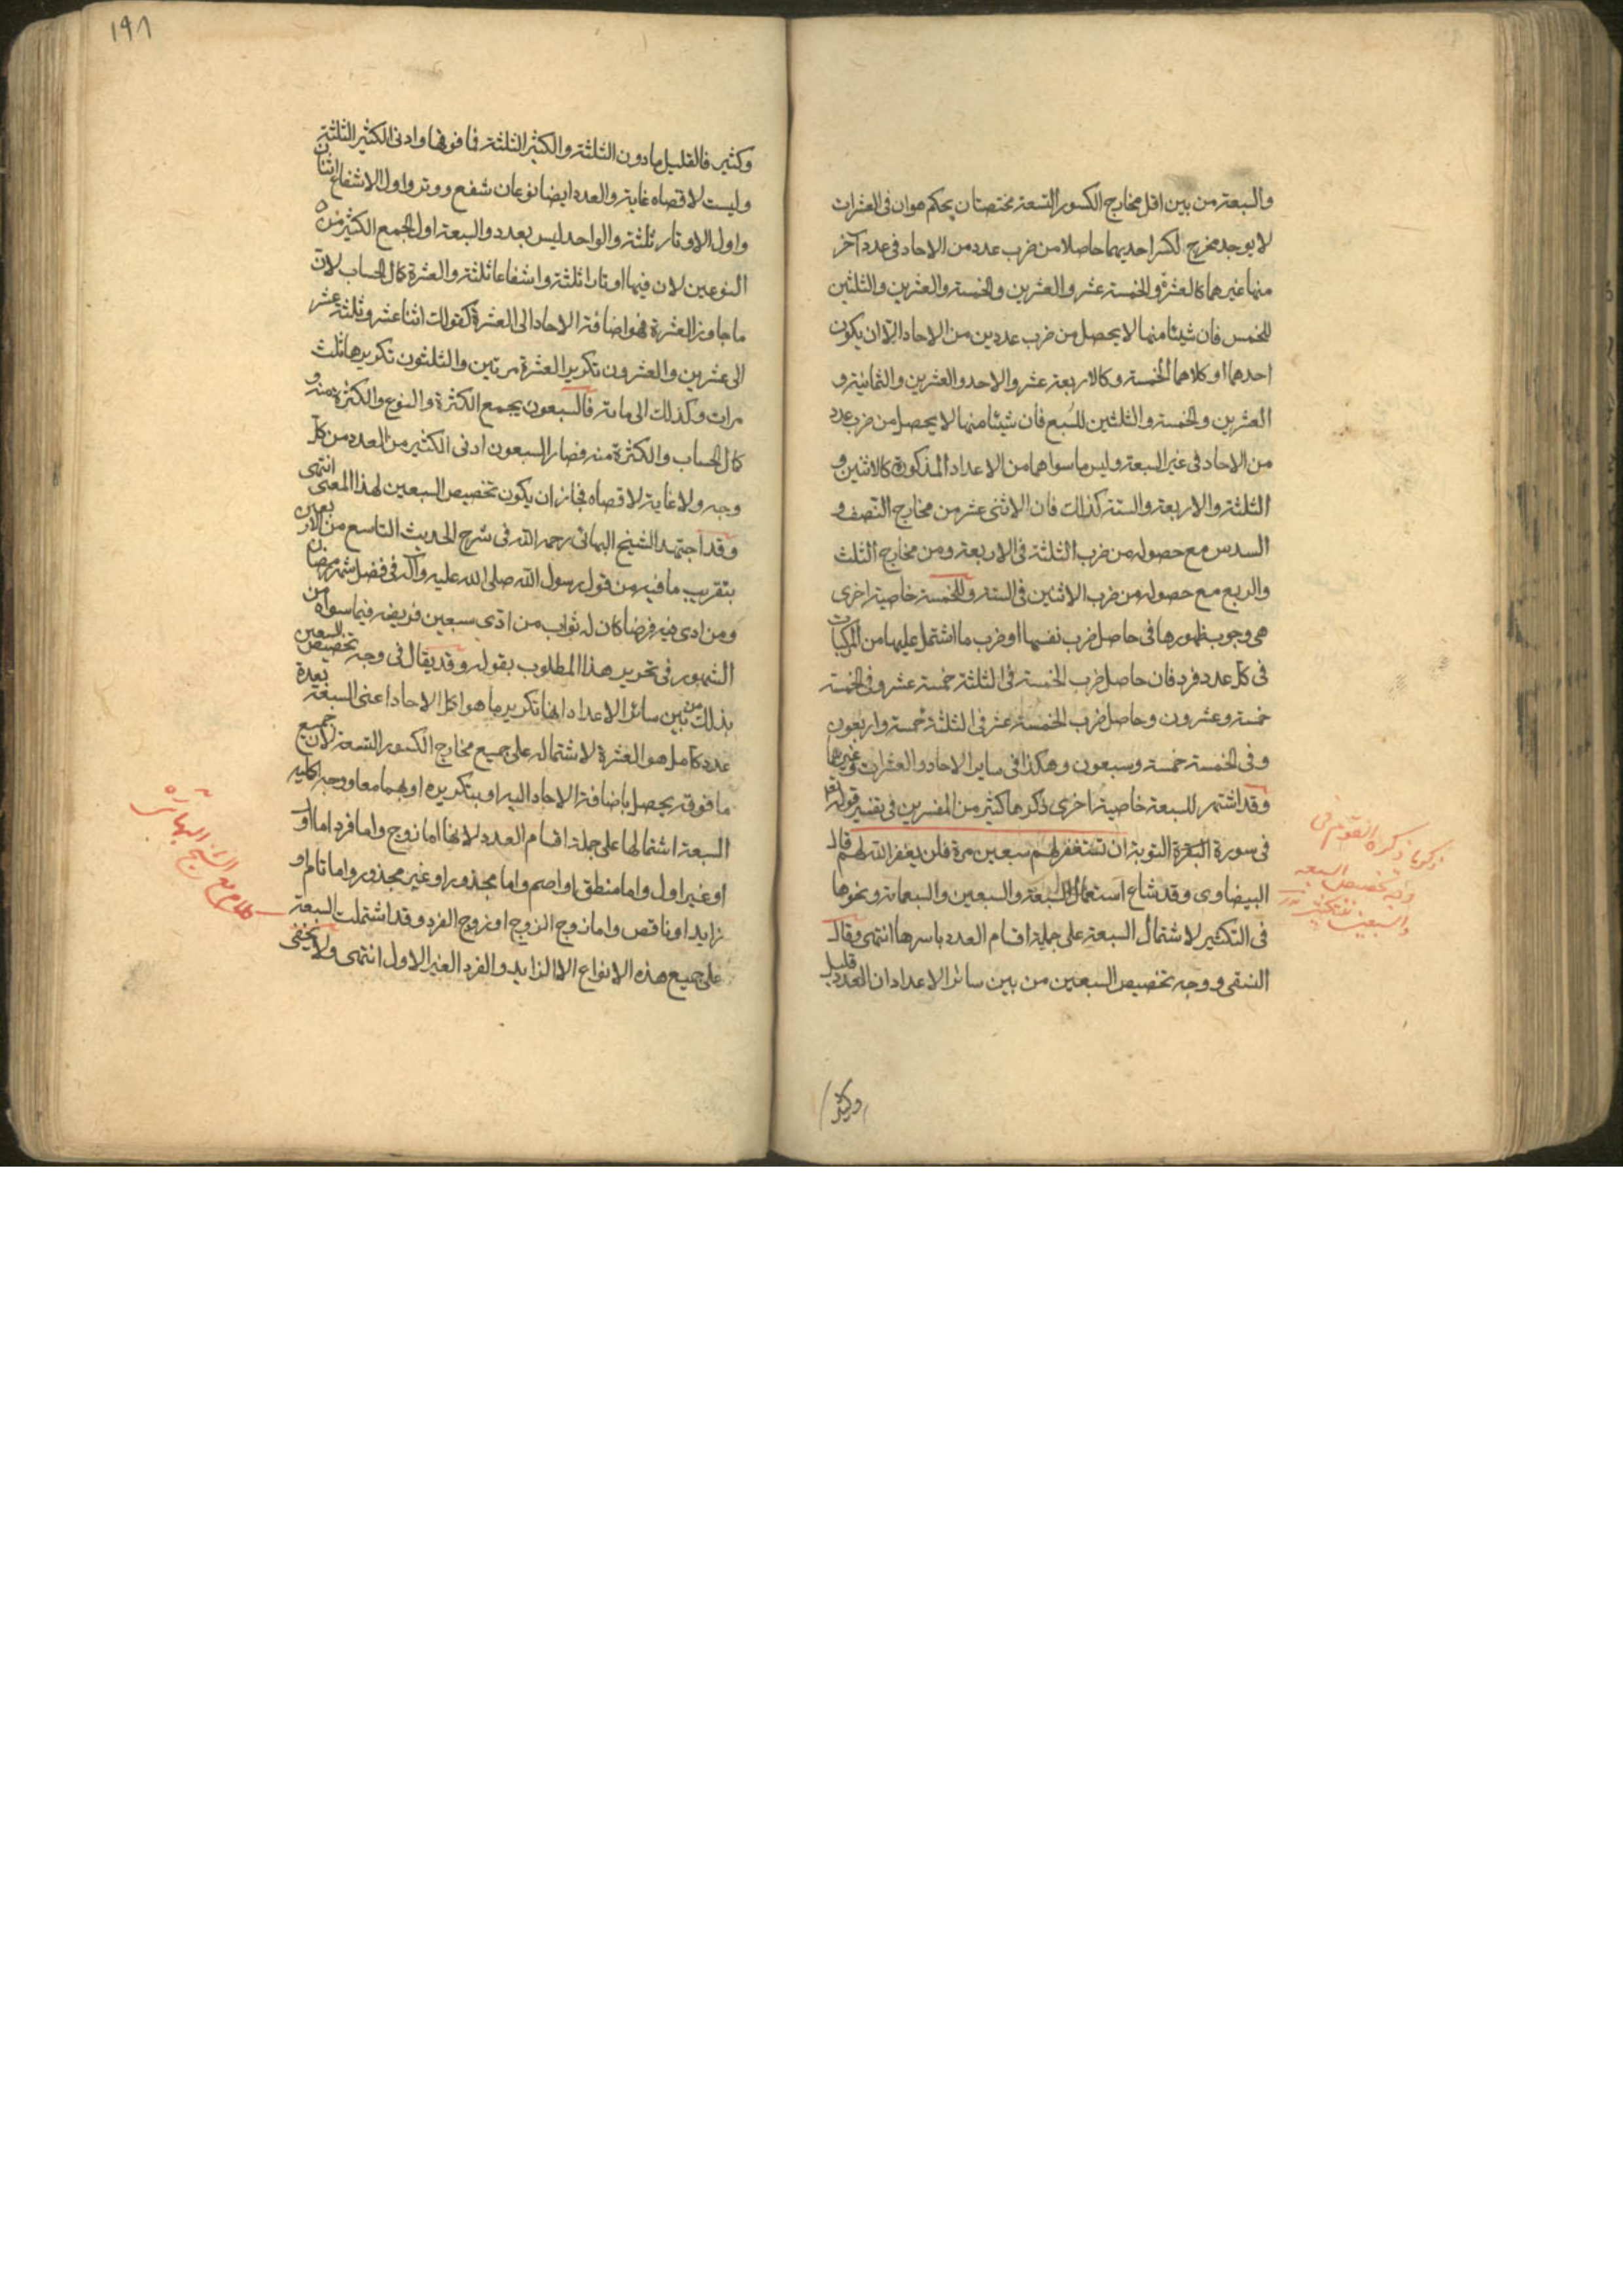 والسبعة من بين اقل مخارج الكسور التسعة مختصتان بحكم هو ان فى العشرات
لا يوجد مخرج لكسر احديهما حاصلا من ضرب عدد من الاحاد فى عدد آخر
منها غيرهما كالعشرة والخمسة عشر والعشرين والخمسة والعشرين والثلثين
للخمس فان شيئا منها لا يحصل من ضرب عددين من الاحاد الا ان يكون
احدهما او كلاهما الخمسة وكالاربعة عشر والاحد والعشرين والثمانية و
العشرين والخمسة والثلثين للسبع فان شيئا منها لا يحصل من ضرب عدد
من الاحاد فى غير السبعة وليس ما سواهما من الاعداد المذكورة كالاثنين و
الثلثة والاربعة والستة كذلك فان الاثنى عشر من مخارج النصف و
السدس مع حصوله من ضرب الثلثة فى الاربعة ومن مخارج الثلث
والربع مع حصوله من ضرب الاثنين فى الستة وللخمسة خاصية اخرى
هى وجوب ظهورها فى حاصل ضرب نفسها او ضرب ما اشتمل عليها من المركبات
فى كل عدد فرد فان حاصل ضرب الخمسة فى الثلثة خمسة عشر وفى الخمسة
خمسة وعشرون وحاصل ضرب الخمسة عشر فى الثلثة خمسة واربعون
وفى الخمسة خمسة وسبعون وهكذا فى ساير الاحاد والعشرات وغيرها
وقد اشتهر للسبعة خاصية اخرى ذكرها كثير من المفسرين فى تفسير قوله تع
فى سورة البقرة التوبة ان تستغفر لهم سبعين مرة فلن يغفر الله لهم قال
البيضاوى وقد شاع استعمال السبعة والسبعين والسبعمائة ونحوها
فى التكثير لاشتمال السبعة على جملة اقسام العدد باسرها انتهى وقال
النسفى ووجه تخصيص السبعين من بين سائر الاعداد ان العدد قليل
ذكر ما ذكره القوم فى
وجه تخصيص السبعة
والسبعين للتكثير
وكثير
١٩٨
وكثير فالقليل ما دون الثلثة والكثير الثلثة فما فوقها وادنى الكثير الثلثة
وليست لاقصاه غاية والعدد ايضا نوعان شفع ووتر واول الاشفاع اثنان
واول الاوتار ثلثة والواحد ليس بعدد والسبعة اول الجمع الكثير من
النوعين لان فيها اوتارا ثلثة واشفاعا ثلثة والعشرة كمال الحساب لان
ما جاوز العشرة فهو اضافة الاحاد الى العشرة كقولك اثنا عشر وثلثة عشر
الى عشرين والعشرون تكرير العشرة مرتين والثلثون تكريرها ثلث
مرات وكذلك الى مائة فالسبعون يجمع الكثرة والنوع والكثرة منه و
كمال الحساب والكثرة منه فصار السبعون ادنى الكثير من العدد من كل
وجه ولا غاية لاقصاه فجاز ان يكون تخصيص السبعين لهذا المعنى انتهى
وقد اجتهد الشيخ البهائى رحمه الله فى شرح الحديث التاسع من الاربعين
بتقريب ما فيه من قول رسول الله صلى الله عليه وآله فى فضل شهر رمضان
ومن ادى فيه فرضا كان له ثواب من ادى سبعين فريضة فيما سواه من
الشهور فى تحرير هذا المطلوب بقوله وقد يقال فى وجه تخصيص السبعين
بذلك من بين سائر الاعداد انها تكرير ما هو اكمل الاحاد اعنى السبعة بعدة
عدد كامل هو العشرة لاشتماله على جميع مخارج الكسور التسعة لان جميع
ما فوقه يحصل باضافة الاحاد اليه او بتكريره او بهما معا ووجه اكملية
السبعة اشتمالها على جملة اقسام العدد لانها اما زوج واما فرد اما اول
او غير اول واما منطق او اصم واما مجذور او غير مجذور واما تام او
زايد او ناقص واما زوج الزوج او زوج الفرد وقد اشتملت السبعة
على جميع هذه الانواع الا الزايد والفرد الغير الاول انتهى ولا يخفى
كلام مع الشيخ البهائى ره